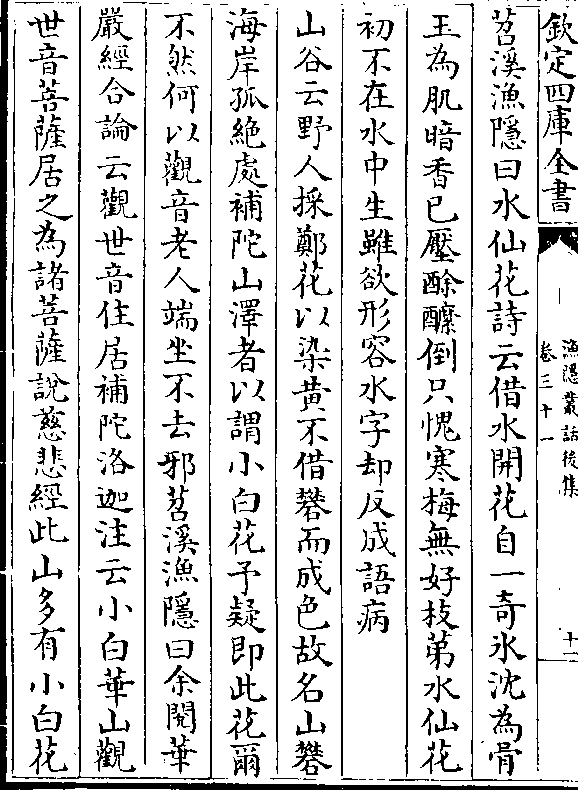 欽定四庫全書
漁隱叢話後集
卷三十一
十一
苕溪漁隱曰水仙花詩云借水開花自一奇氷沈為骨
玉為肌暗香已壓酴醾倒只愧寒梅無好枝第水仙花
初不在水中生雖欲形容水字却反成語病
山谷云野人採鄭花以染黄不借礬而成色故名山礬
海岸孤絶處補陀山澤者以謂小白花予疑即此花爾
不然何以觀音老人端坐不去邪苕溪漁隱曰余閱華
嚴經合論云觀世音住居補陀洛迦注云小白華山觀
世音菩薩居之為諸菩薩說慈悲經此山多有小白花